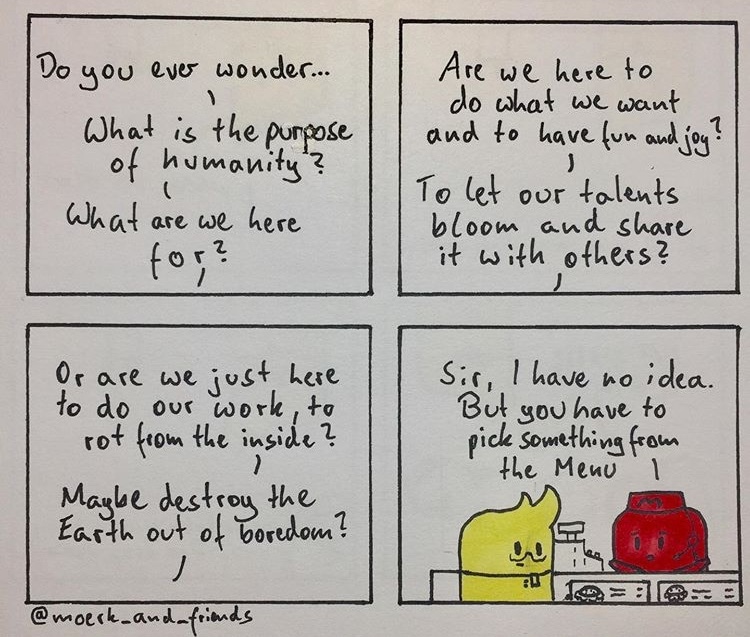 Do you ever wonder...
What is the purpose
of humanity?
What are we here
for?
Are we here to
do what we want
and to have fun and joy?
To let our talents
bloom and share
it with others?
Or are we just here
to do our work, to
rot from the inside?
Maybe destroy the
Earth out of boredom?
Sir, I have no idea.
But you have to
pick something from
the Menu
@moerk_and_friends